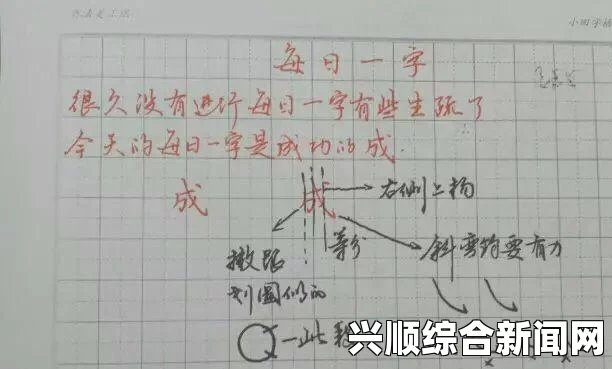 小田字格
每日一字
很久没有进行每日一字有些生疏了
今天的每日一字是成功的成.
成 成
右侧上扬
等分
斜弯钩要有力
撇跟
划圆似的
一些
兴顺综合新闻网